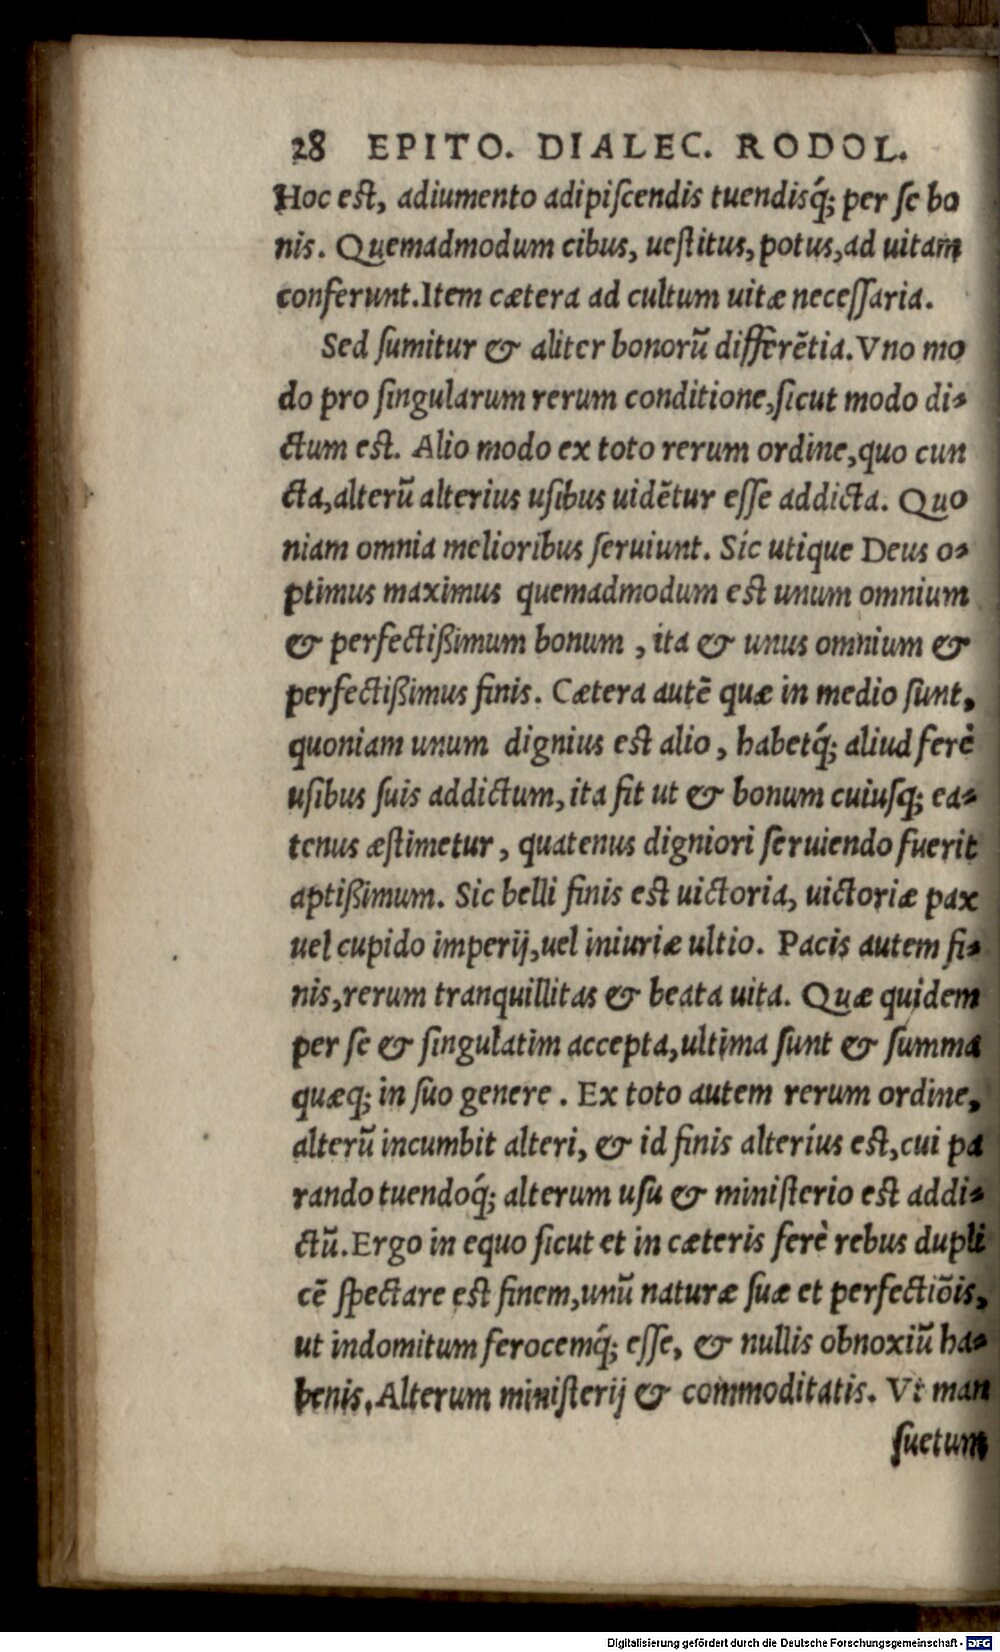 28 EPITO. DIALEC. RODOL.
Hoc est, adiumento adipiſcendis tuendisq́; per ſe bo
nis. Quemadmodum cibus, ueſtitus, potus, ad uitam
conferunt. Item cætera ad cultum uitæ neceſſaria.
Sed ſumitur & aliter bonorũ differẽtia. Vno mo
do pro ſingularum rerum conditione, ſicut modo di⸗
ctum est. Alio modo ex toto rerum ordine, quo cun
cta, alterũ alterius uſibus uidẽtur eſſe addicta. Quo
niam omnia melioribus ſeruiunt. Sic utique Deus o⸗
ptimus maximus quemadmodum est unum omnium
& perfectißimum bonum, ita & unus omnium &
perfectißimus finis. Cætera autẽ quæ in medio ſunt,
quoniam unum dignius est alio, habetq́; aliud ferè
uſibus ſuis addictum, ita fit ut & bonum cuiuſq; ea⸗
tenus æſtimetur, quatenus digniori ſeruiendo fuerit
aptißimum. Sic belli finis est uictoria, uictoriæ pax
uel cupido imperij, uel iniuriæ ultio. Pacis autem fi⸗
nis, rerum tranquillitas & beata uita. Quæ quidem
per ſe & ſingulatim accepta, ultima ſunt & ſumma
quæq; in ſuo genere. Ex toto autem rerum ordine,
alterũ incumbit alteri, & id finis alterius est, cui pa
rando tuendoq́; alterum uſu & miniſterio est addi⸗
ctũ. Ergo in equo ſicut et in cæteris ferè rebus dupli
cẽ ſpectare est finem, unũ naturæ ſuæ et perfectiõis,
ut indomitum ferocemq́; eſſe, & nullis obnoxiũ ha⸗
benis. Alterum miniſterij & commoditatis. Vt man
ſuetum
Digitalisierung gefördert durch die Deutsche Forschungsgemeinschaft - DFG